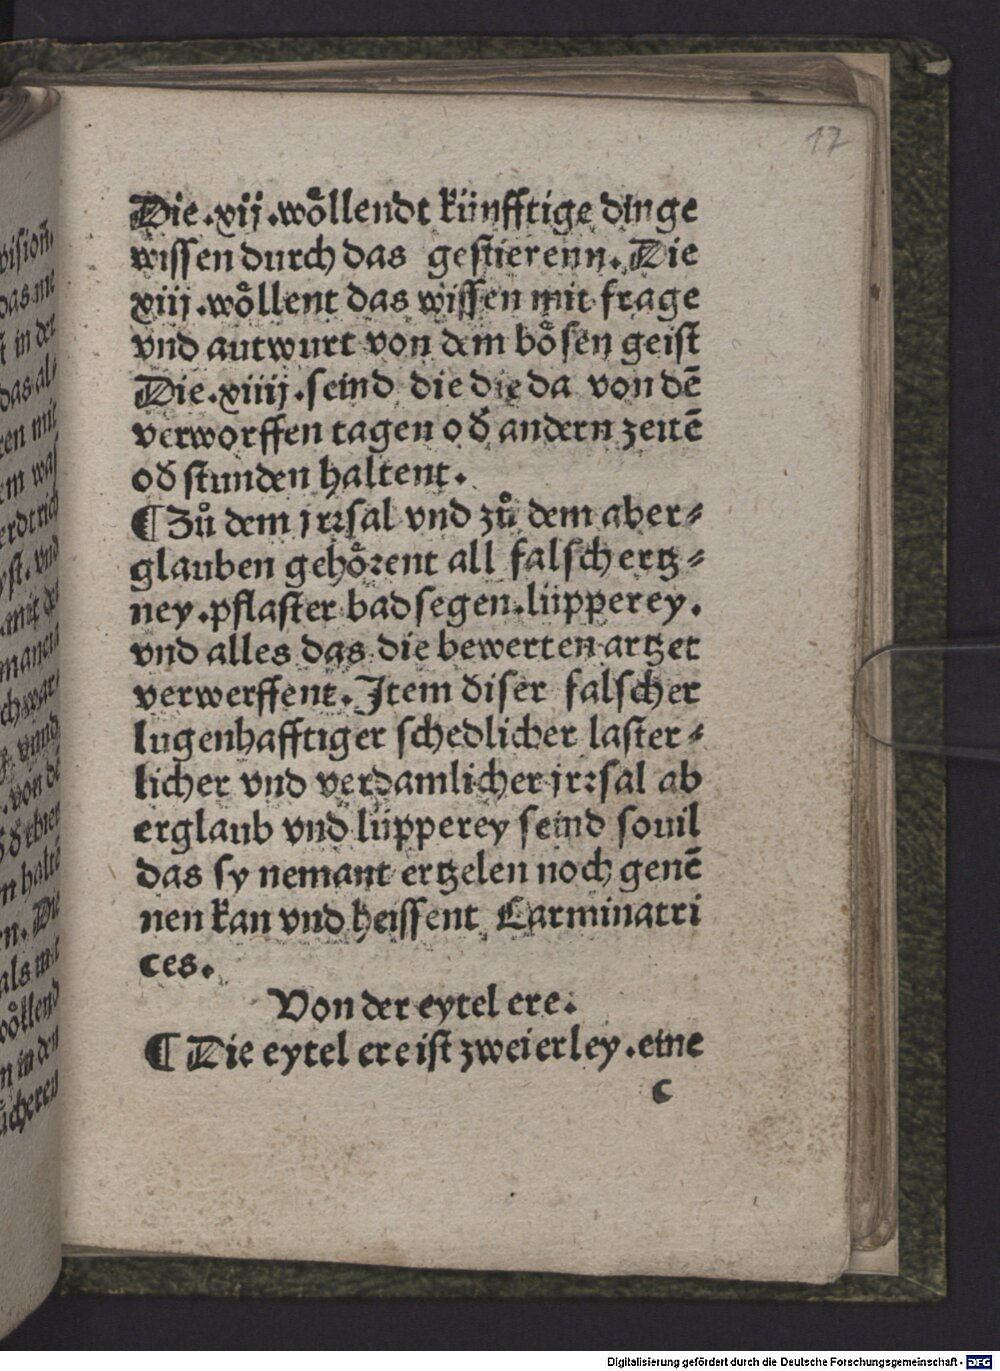 17
Die.xij.woͤllendt künfftige dinge
wissen durch das gestierenn. Die
xiij.woͤllent das wissen mit frage
vnd antwurt von dem boͤsen geist
Die.xiiij.seind die die da von dē
verworffen tagen od̛ andern zeitē
od̛ stunden haltent.
¶Zuͦ dem jrꝛsal vnd zuͦ dem aber⸗
glauben gehoͤꝛent all falsch ertz⸗
ney.pflaster bad segen.lüpperey.
vnd alles das die bewerten artzet
verwerffent.Item diser falscher
lugenhafftiger schedlicher laster⸗
licher vnd verdamlicher jrꝛsal ab
erglaub vnd lüpperey seind souil
das sy nemant ertzelen noch genē
nen kan vnd heissent Carminatri
ces.
Von der eytel ere.
¶ Die eytel ere ist zweierley.eine
c
vision̄.
das me
t in der
das al⸗
ren mit
em was
erdtrich
yst. vnd
.mit der
mancia
vnnd
.von dē
n haltē
n. Die
als mit
woͤllend
n in den
Digitalisierung gefördert durch die Deutsche Forschungsgemeinschaft - DFG